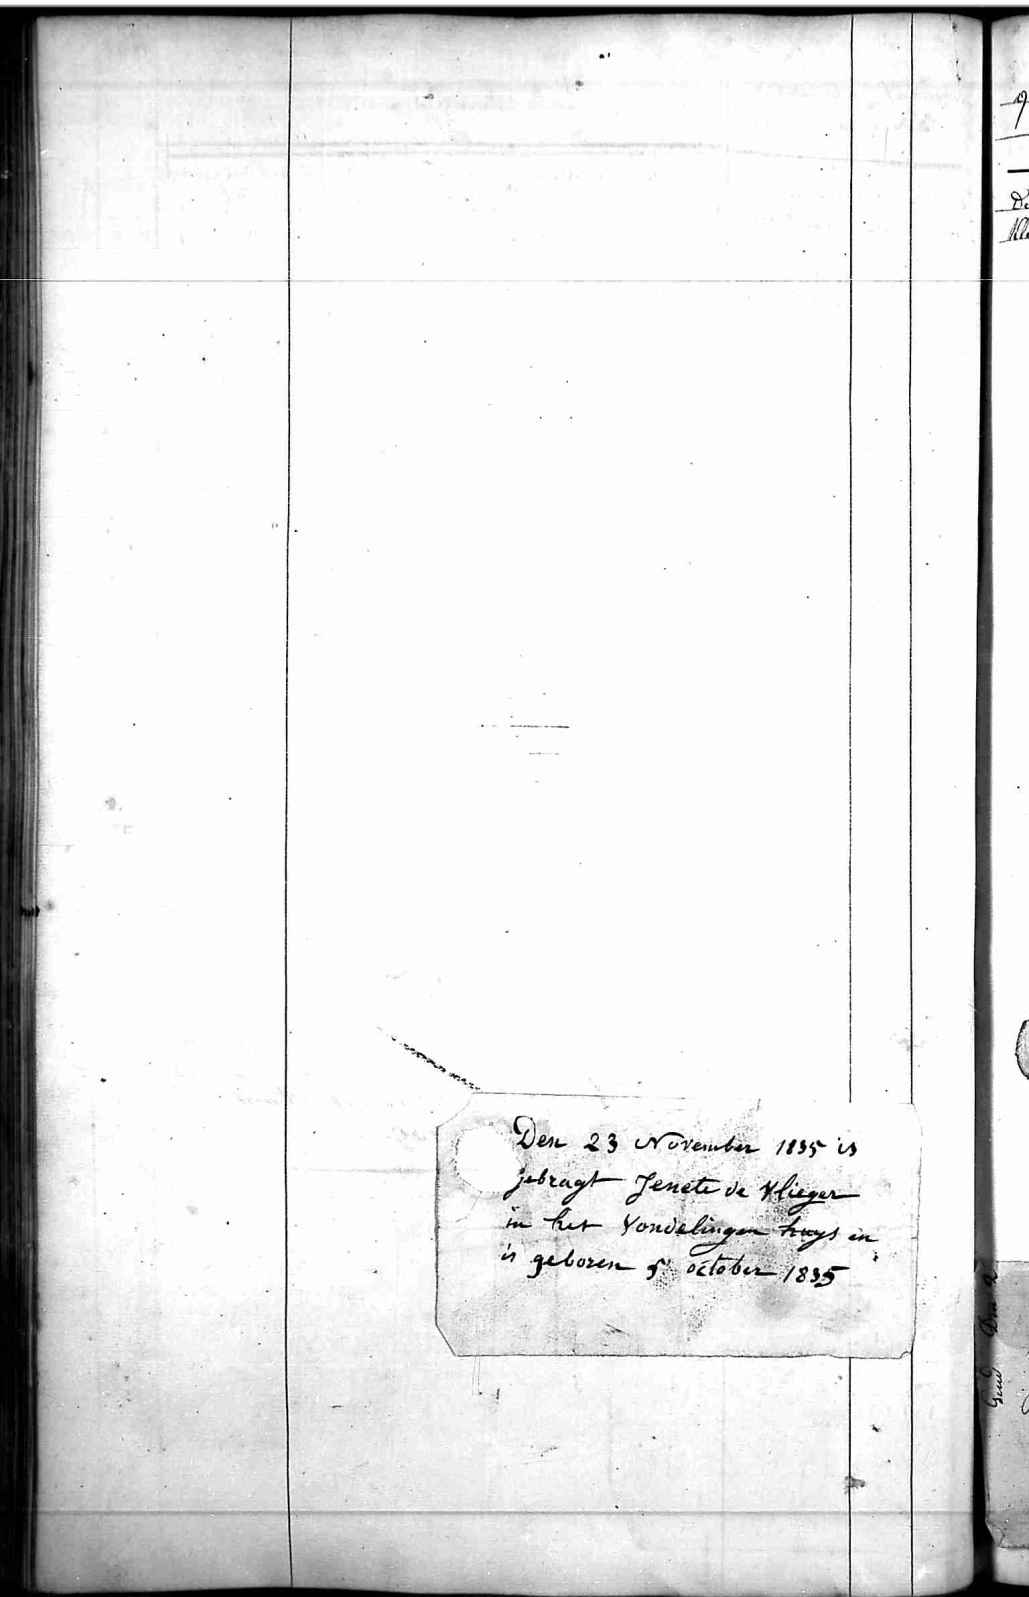 Den 23 November 1835 is
gebragt Jenete de Vlieger
in het Vondelingen huys en
is geboren 5 october 1835